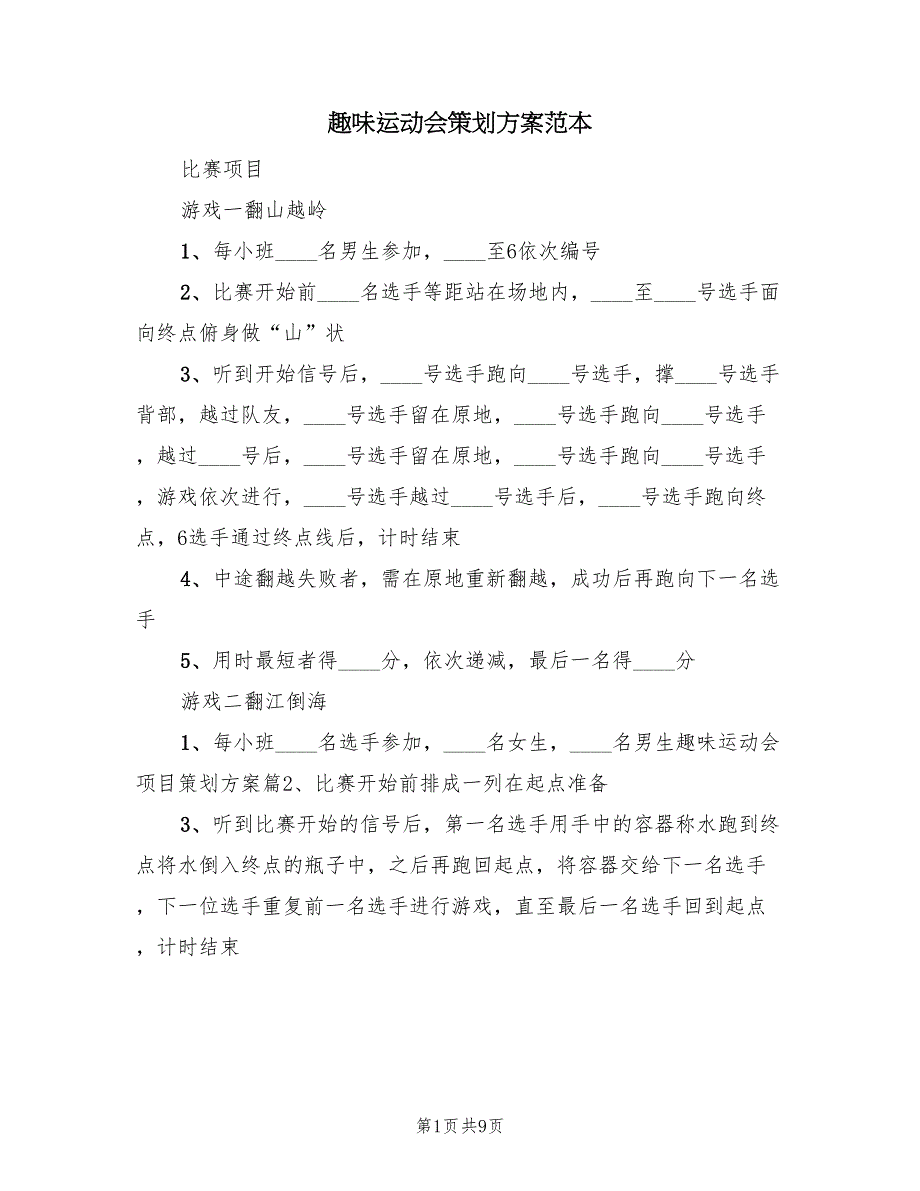 趣味运动会策划方案范本
比赛项目
游戏一翻山越岭
1、每小班____名男生参加，____至6依次编号
2、比赛开始前____名选手等距站在场地内，____至____号选手面
向终点俯身做“山”状
3、听到开始信号后，____号选手跑向____号选手，撑____号选手
背部，越过队友，____号选手留在原地，____号选手跑向____号选手
，越过____号后，____号选手留在原地，____号选手跑向____号选手
，游戏依次进行，____号选手越过____号选手后，____号选手跑向终
点，6选手通过终点线后，计时结束
4、中途翻越失败者，需在原地重新翻越，成功后再跑向下一名选
手
5、用时最短者得____分，依次递减，最后一名得____分
游戏二翻江倒海
1、每小班____名选手参加，____名女生，____名男生趣味运动会
项目策划方案篇2、比赛开始前排成一列在起点准备
3、听到比赛开始的信号后，第一名选手用手中的容器称水跑到终
点将水倒入终点的瓶子中，之后再跑回起点，将容器交给下一名选手
，下一位选手重复前一名选手进行游戏，直至最后一名选手回到起点
，计时结束
第1页共9页